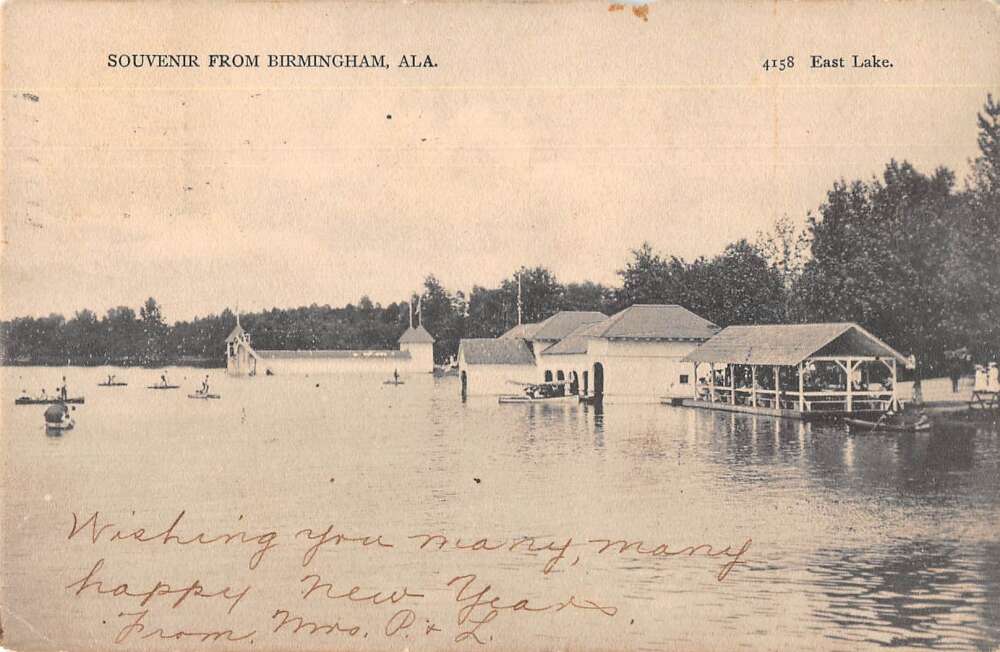 SOUVENIR FROM BIRMINGHAM, ALA.
4158 East Lake.
Wishing you many, many
happy New Years.
From Mrs. P. & L.